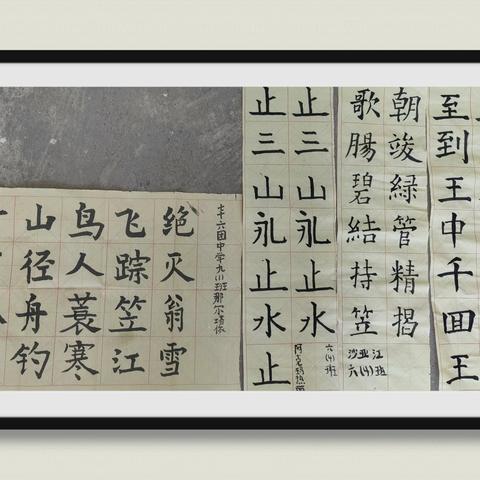 山鸟飞绝
径人踪灭
舟蓑笠翁
钓寒江雪
六团中学九(1)班那尔
止三山永止水
止三山永止水止
六(4)班
朝竣緑管精揭
歌腸碧結持笠
沙亚江
六(4)班
至到王中千回王